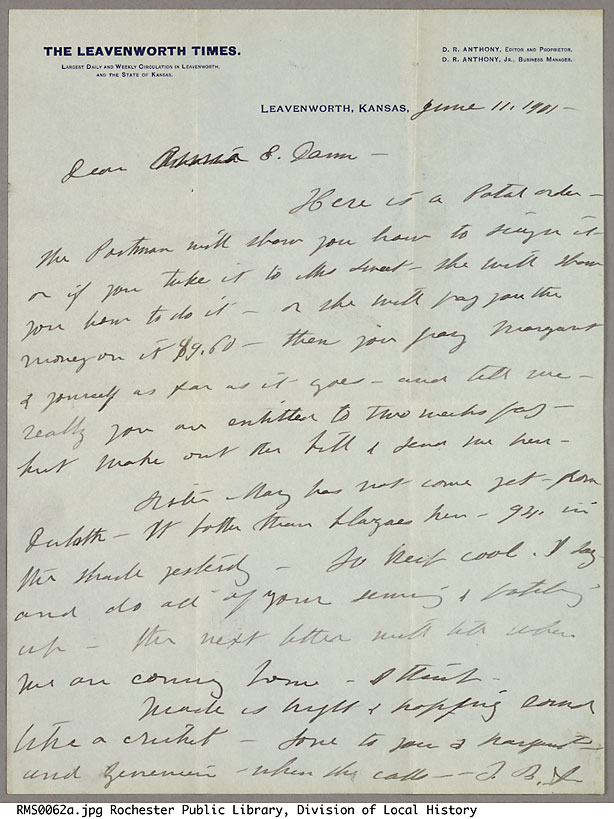 THE LEAVENWORTH TIMES.
LARGEST DAILY AND WEEKLY CIRCULATION IN LEAVENWORTH,
AND THE STATE OF KANSAS.
D. R. ANTHONY, EDITOR AND PROPRIETOR.
D. R. ANTHONY, JR., BUSINESS MANAGER.
LEAVENWORTH, KANSAS, June 11, 1901-
Dear E. Dann -
Here is a Postal order -
The Postman will show you how to sign it -
or if you take it to Mrs Sweet - she will show
you how to do it - or she will pay you the
money on it $9.60 - then you pay Margaret
& yourself as far as it goes - and tell me -
really you are entitled to two weeks pay -
but make out the bill & send me here -
Sister Mary has not come yet - from
Duluth - hotter than blazes here - 94. in
the shade yesterday - So keep cool. I say
and do all of your sewing &
up - the next letter will tell when
we are coming home - I think -
Maude is bright & hopping round
like a cricket - love to you & Margaret -
and Genevieve - when she calls -
RMS0062a.jpg Rochester Public Library, Division of Local History